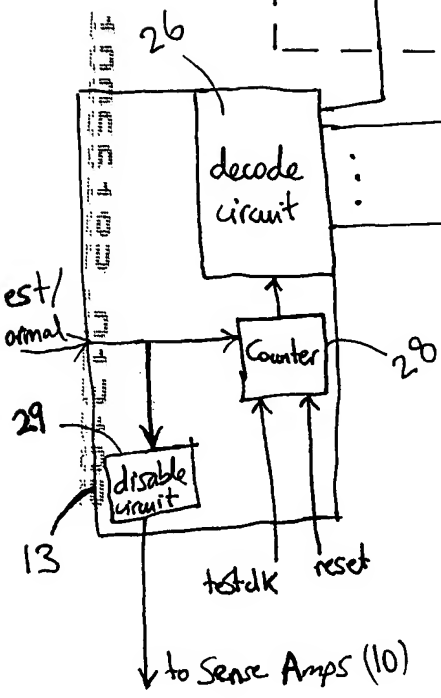 26
decode
circuit
est/
ormal
Counter
28
29
disable
circuit
13
testclk
reset
to Sense Amps (10)